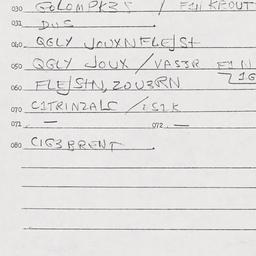 030 GOLOMPK3S / F41KPOUT
031 DUS
040. QGLY JOUXNFLE/St
050 QGLY JOUX / VAS3R F1N
716
060 FLE/StN, ZOU3RN
070 C1TRINZALS / 1S1K
071 — 072. —
080 C1G3BRENT